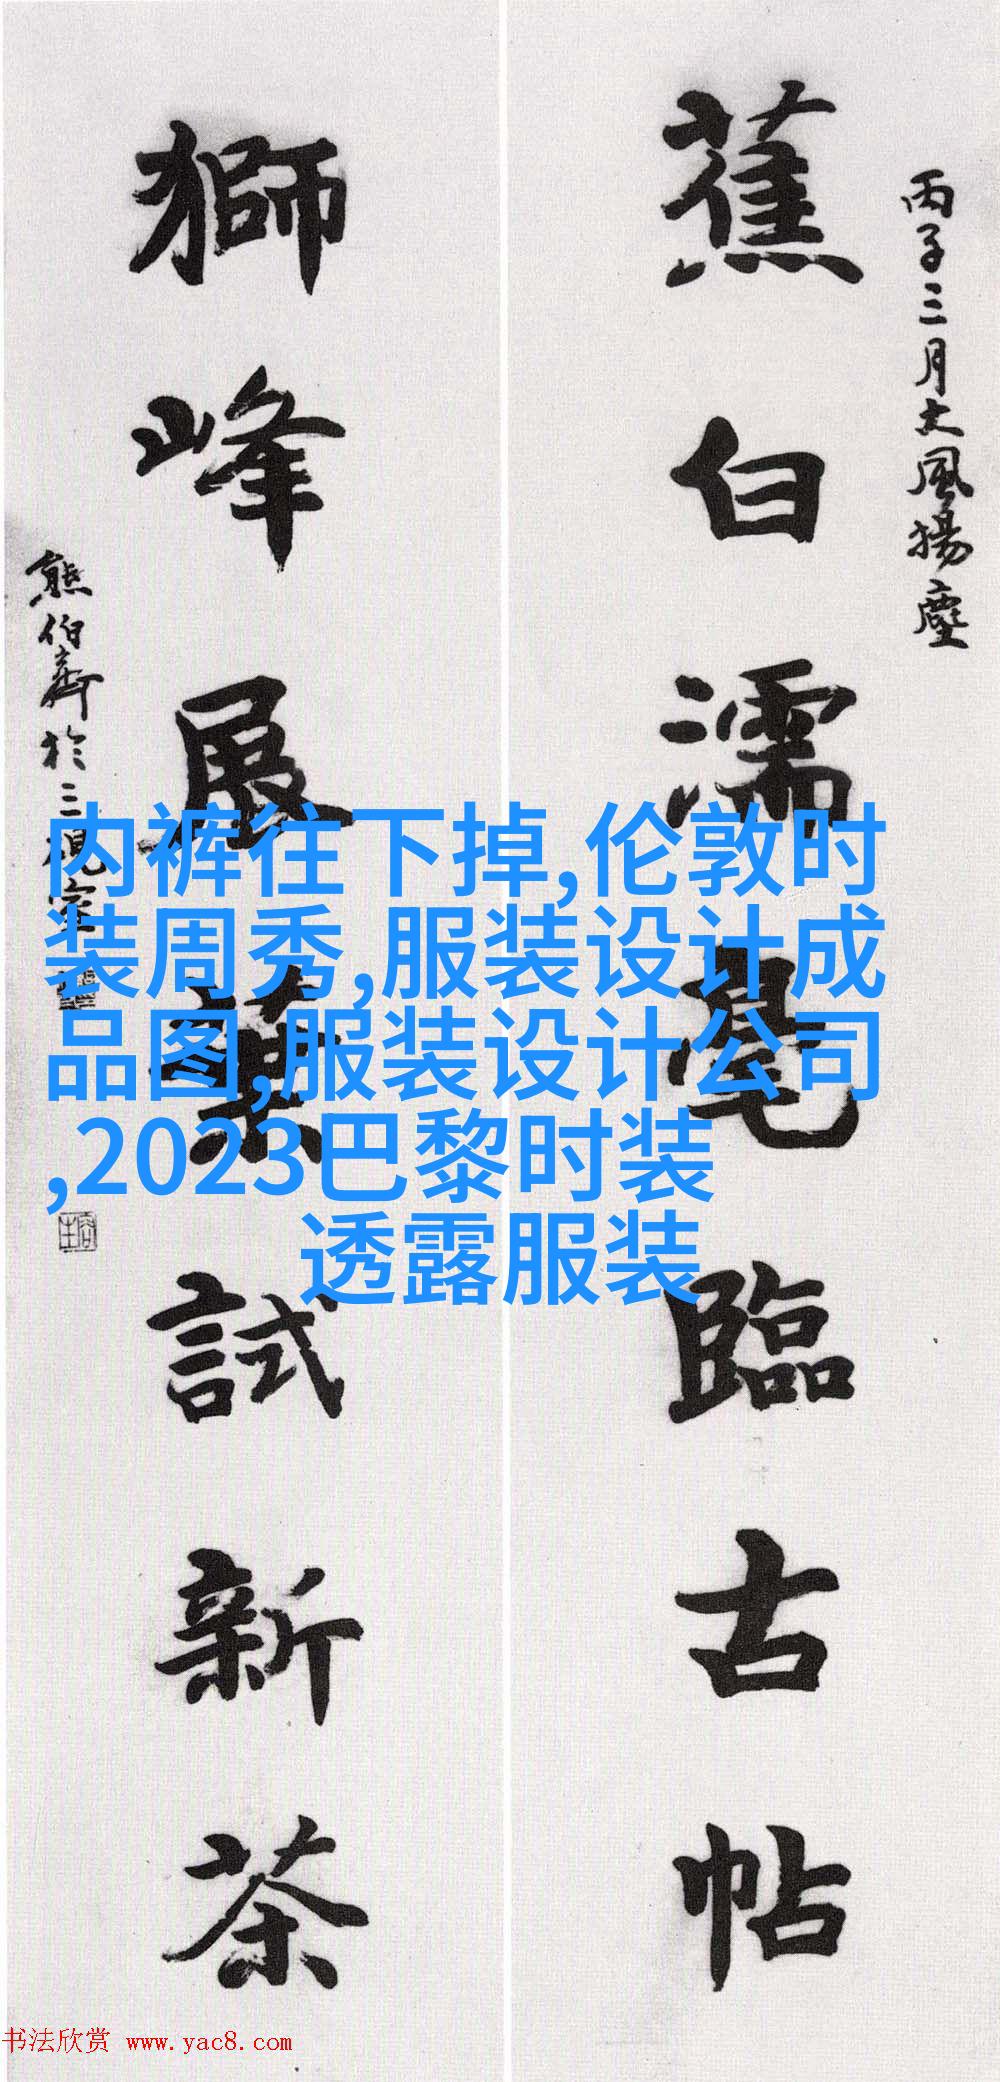 丙子三月大風揚塵
蕉白濡毫臨古帖
獅峰展葉試新茶
熊伯齊於三硯室
内裤往下掉,伦敦时
装周秀,服装设计成
品图,服装设计公司
,2023巴黎时装
透露服装
书法欣赏 www.yac8.com